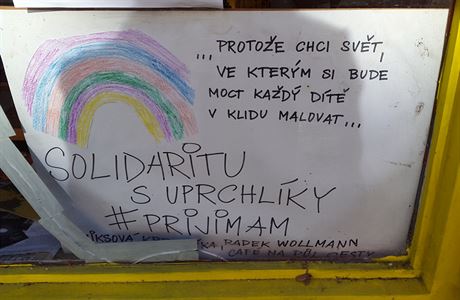 ... PROTOŽE CHCI SVĚT,
VE KTERÝM SI BUDE
MOCT KAŽDÝ DÍTĚ
V KLIDU MALOVAT...
SOLIDARITU
S UPRCHLÍKY
#PŘIJÍMÁM
RADEK WOLLMANN
CAFE NA PŮL CESTY